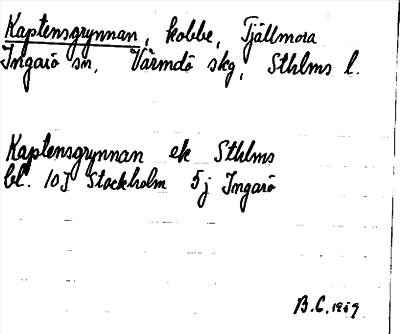 Kaptensgrynnan, kobbe, Tjällmora
Ingarö sn, Värmdö skg, Sthlms l.
Kaptensgrynnan ek Sthlms
bl. 10I Stockholm 5j Ingarö
B.C. 1959